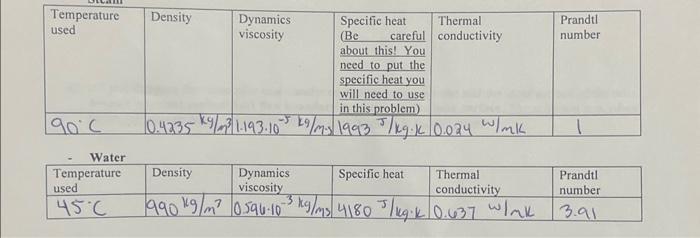 Steam
Temperature used | Density | Dynamics viscosity | Specific heat (Be careful about this! You need to put the specific heat you will need to use in this problem) | Thermal conductivity | Prandtl number
90°C | 0.4235 kg/m³ | 1.193·10⁻⁵ kg/m·s | 1993 J/kg·K | 0.024 W/mK | 1
- Water
Temperature used | Density | Dynamics viscosity | Specific heat | Thermal conductivity | Prandtl number
45°C | 990 kg/m³ | 0.596·10⁻³ kg/ms | 4180 J/kg·K | 0.637 W/mK | 3.91